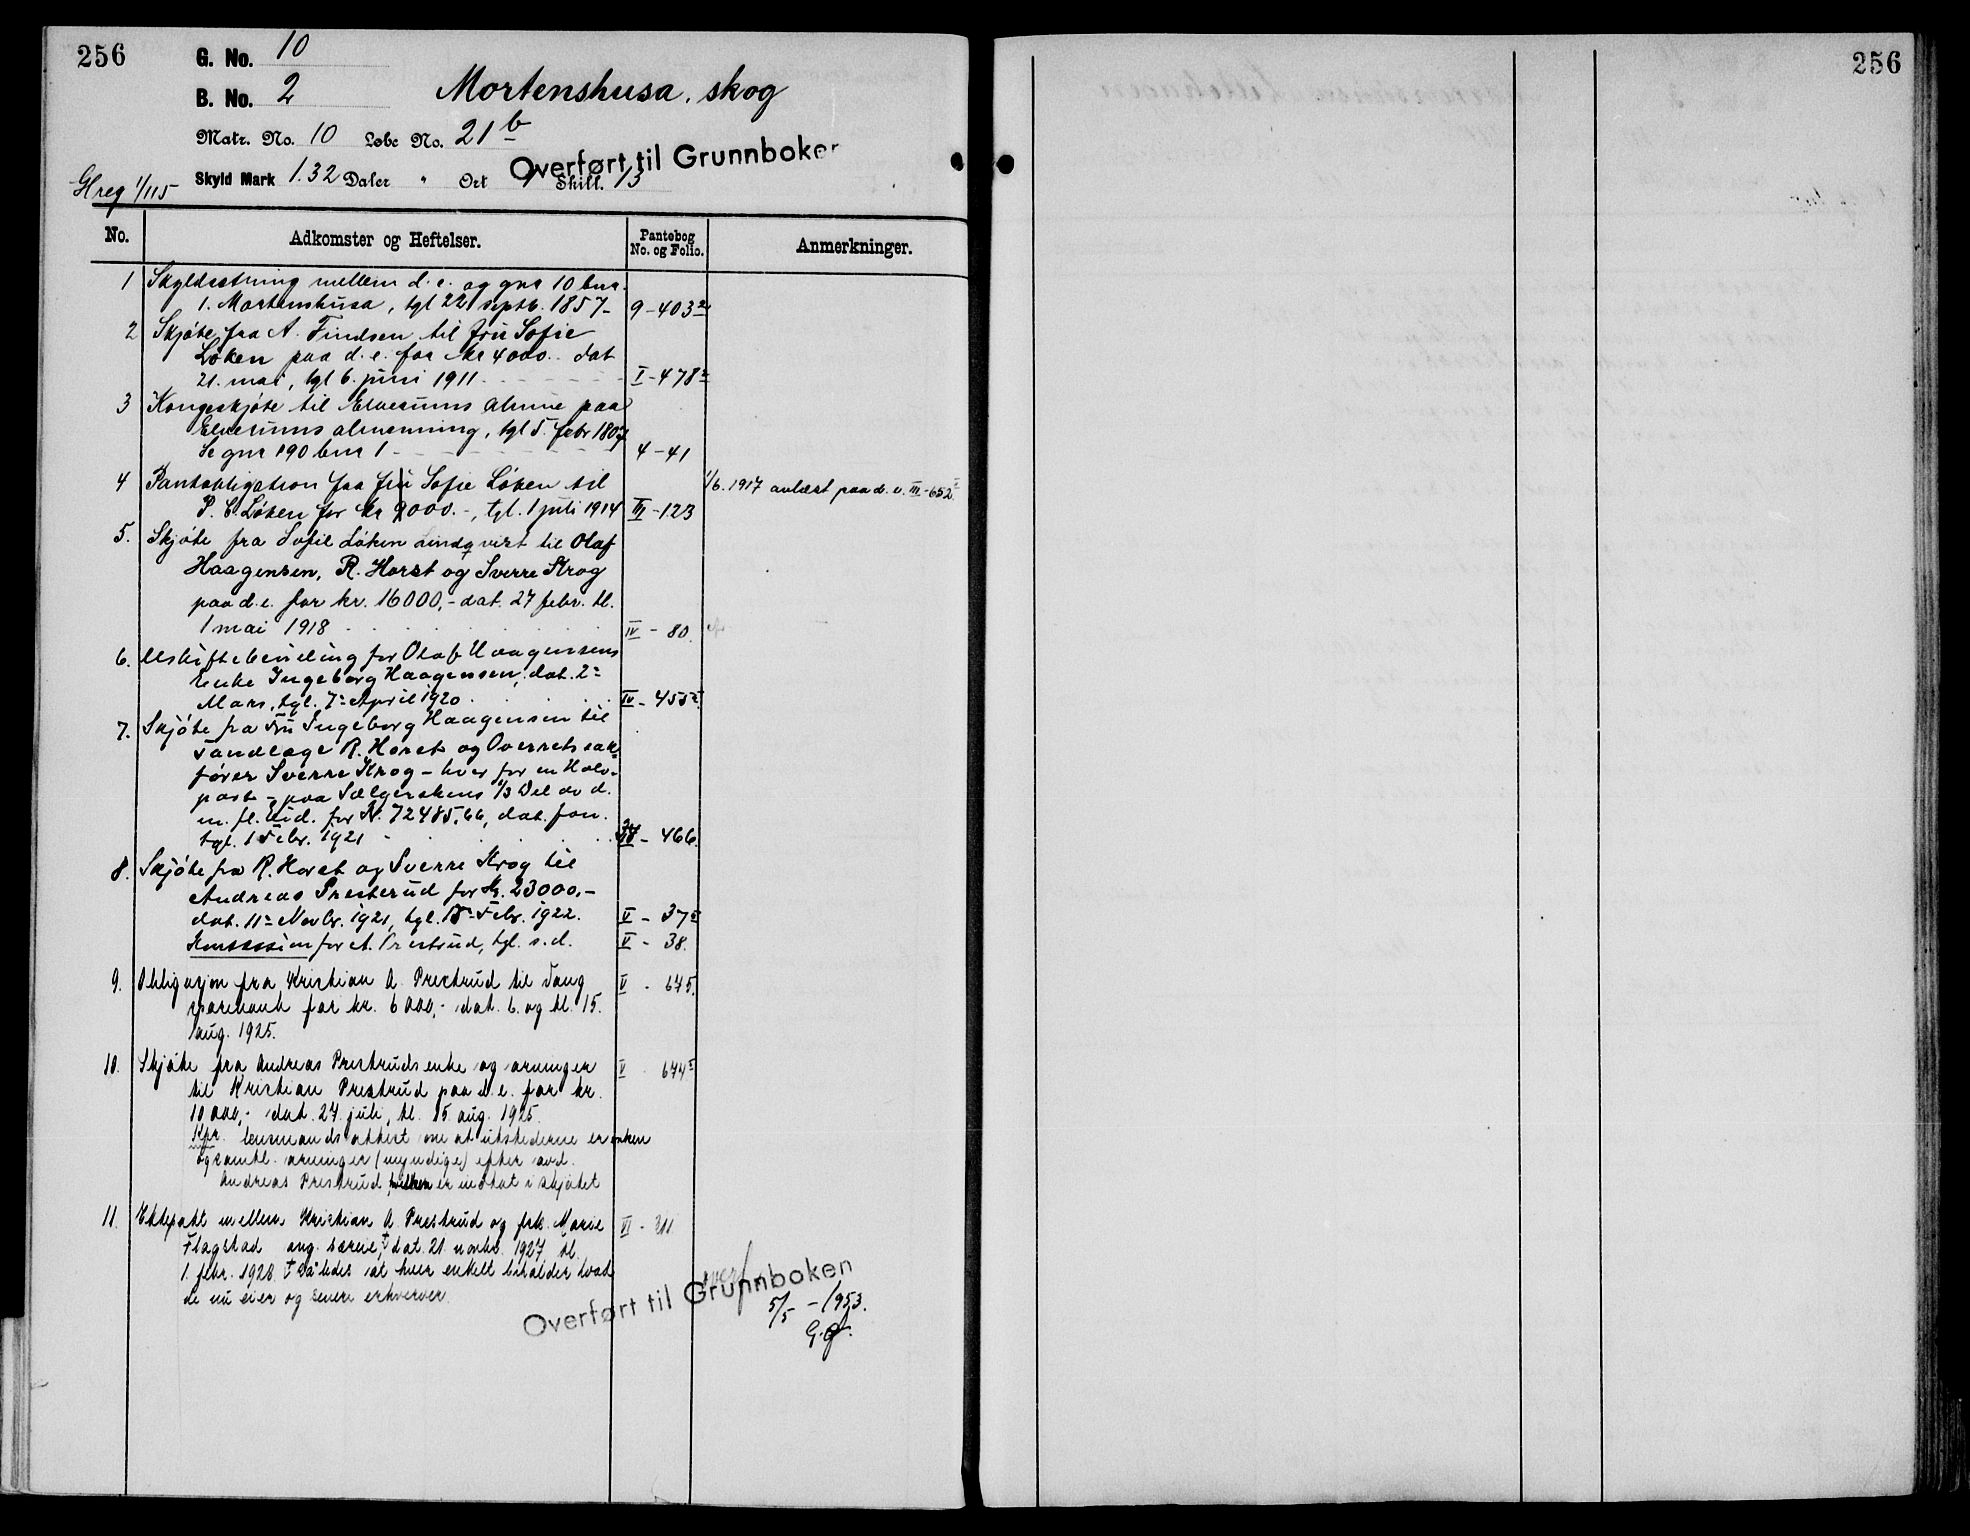 256
G. No. 10
B. No. 2
Mortenshusa, skog
Matr. No. 10 Løbe No. 21 b
Overført til Grunnboken
Skyld Mark 1.32 Daler " Ort 1 Skill. 13
Hreg 1/115
No. Adkomster og Heftelser. Pantebog No. og Folio. Anmerkninger.
1 Skyldsetning mellem d. e. og gnr 10 bnr.
1. Mortenshusa, tgl 22 septb. 1857- 9-403
2 Skjøte fra A. Findsen til fru Sofie
Løken paa d. e. for kr 4000.- dat
21. mai, tgl 6. juni 1911. I-478
3 Kongeskjøte til Elverums almue paa
Elverums almenning, tgl 5. febr 1807
Se gnr 190 bnr 1 4-41
4 Pantobligation fra fru Sofie Løken til
P. C. Løken for kr 9000.-, tgl. 1 juli 1914 III-123
1/6. 1917 avlæst paa d. e. III-652
5. Skjøte fra Sofie Løken Lindqvist til Olaf
Haagensen, R. Horst og Sverre Krog
paa d. e. for kr. 16000,- dat. 27 febr. tl.
1 mai 1918 IV - 80.
6. Uskiftebevilling for Olaf Haagensens
Enke Ingeborg Haagensen, dat. 2-
Mars, tgl. 7- April 1920 IV - 455
7. Skjøte fra Fru Ingeborg Haagensen til
Tandlæge R. Horst og Overretssak-
fører Sverre Krog - hver for en Halv-
part - paa Sælgerskens 1/3 Del av d. e.
m. fl. Eid. for Kr. 72485,66, dat. jan.
tgl. 1 Febr. 1921 - 466.
8. Skjøte fra R. Horst og Sverre Krog til
Andreas Presterud for Kr. 23000,-
dat. 11- Novbr. 1921, tgl. 15- Febr. 1922. V - 37
Konsession for A. Prestrud, tgl. s. d. V - 38.
9. Obligasjon fra Kristian A. Prestrud til Vang
sparebank for kr. 6000,- dat. 6. og tl. 15.
aug. 1925. V - 645.
10. Skjøte fra Andreas Prestruds enke og arvinger
til Kristian Prestrud paa d. e. for kr.
10000,- dat. 27. juli, tl. 15. aug. 1925. V 644
Kpr. lensmandsattest om at utstederne er enken
og samtl. arvinger (myndige) efter avd.
Andreas Prestrud, hvilken er inntat i skjøtet
11. Ektepakt mellem Kristian A. Prestrud og frk. Marie
Flagstad ang. særeie, dat. 21. novbr. 1927, tl.
1. febr. 1928. Således at hver enkelt beholder hvad
de nu eier og senere erhverver. VI - 311
overf.
Overført til Grunnboken
5/5 - 1953.
256